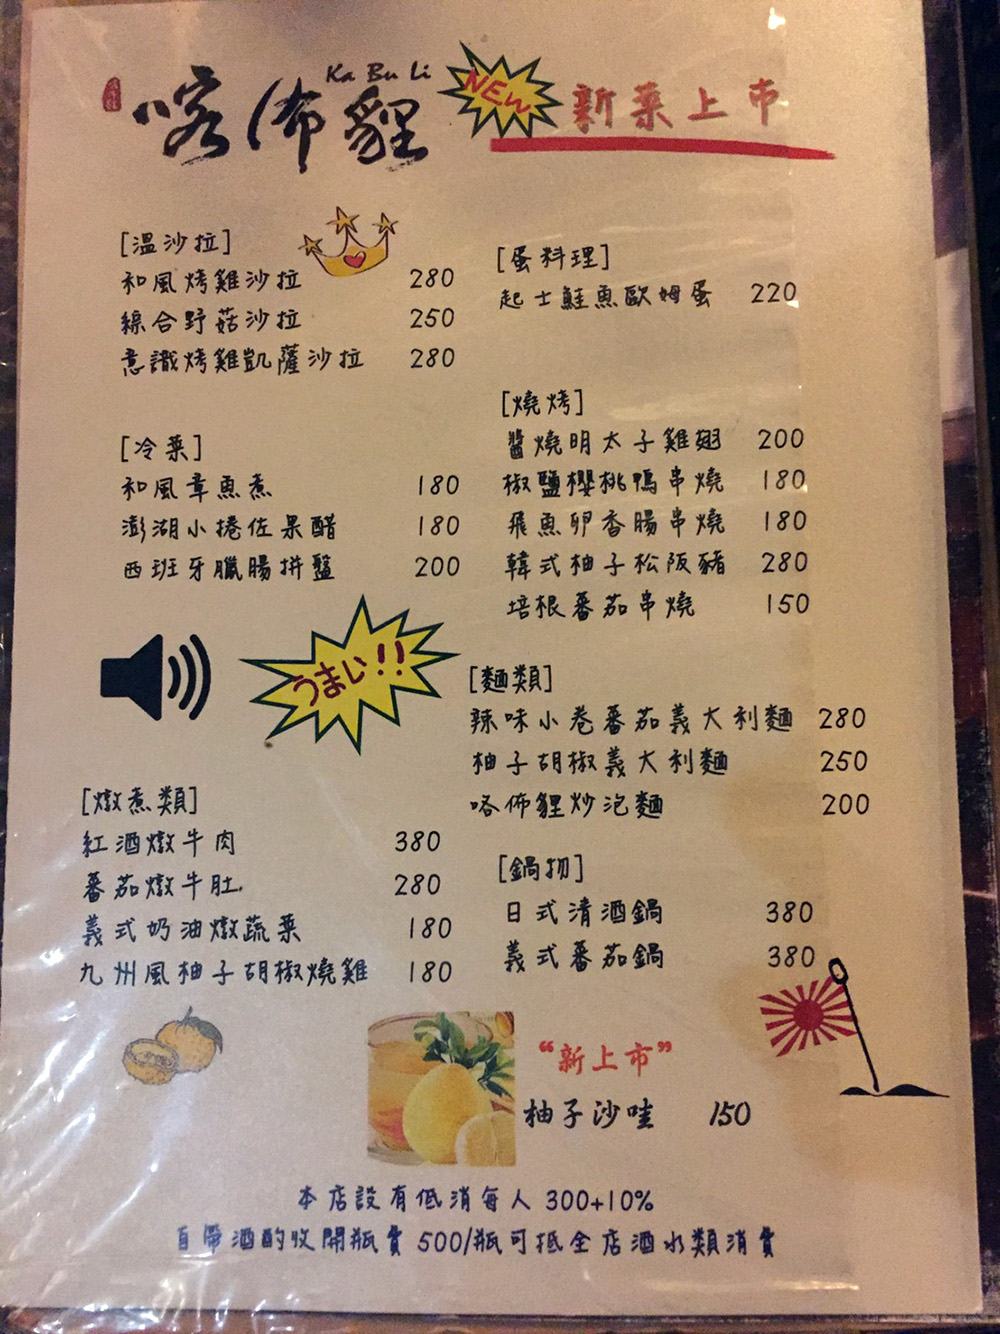 Ka Bu Li
喀佈貍
NEW
新菜上市
[溫沙拉]
和風烤雞沙拉 280
綜合野菇沙拉 250
意識烤雞凱薩沙拉 280
[冷菜]
和風章魚煮 180
澎湖小捲佐果醋 180
西班牙臘腸拼盤 200
うまい!!
[燉煮類]
紅酒燉牛肉 380
蕃茄燉牛肚 280
義式奶油燉蔬菜 180
九州風柚子胡椒燒雞 180
[蛋料理]
起士鮭魚歐姆蛋 220
[燒烤]
醬燒明太子雞翅 200
椒鹽櫻桃鴨串燒 180
飛魚卵香腸串燒 180
韓式柚子松阪豬 280
培根蕃茄串燒 150
[麵類]
辣味小卷蕃茄義大利麵 280
柚子胡椒義大利麵 250
咯佈貍炒泡麵 200
[鍋物]
日式清酒鍋 380
義式蕃茄鍋 380
“新上市”
柚子沙哇 150
本店設有低消每人 300+10%
自帶酒酌收開瓶費 500/瓶可抵全店酒水類消費